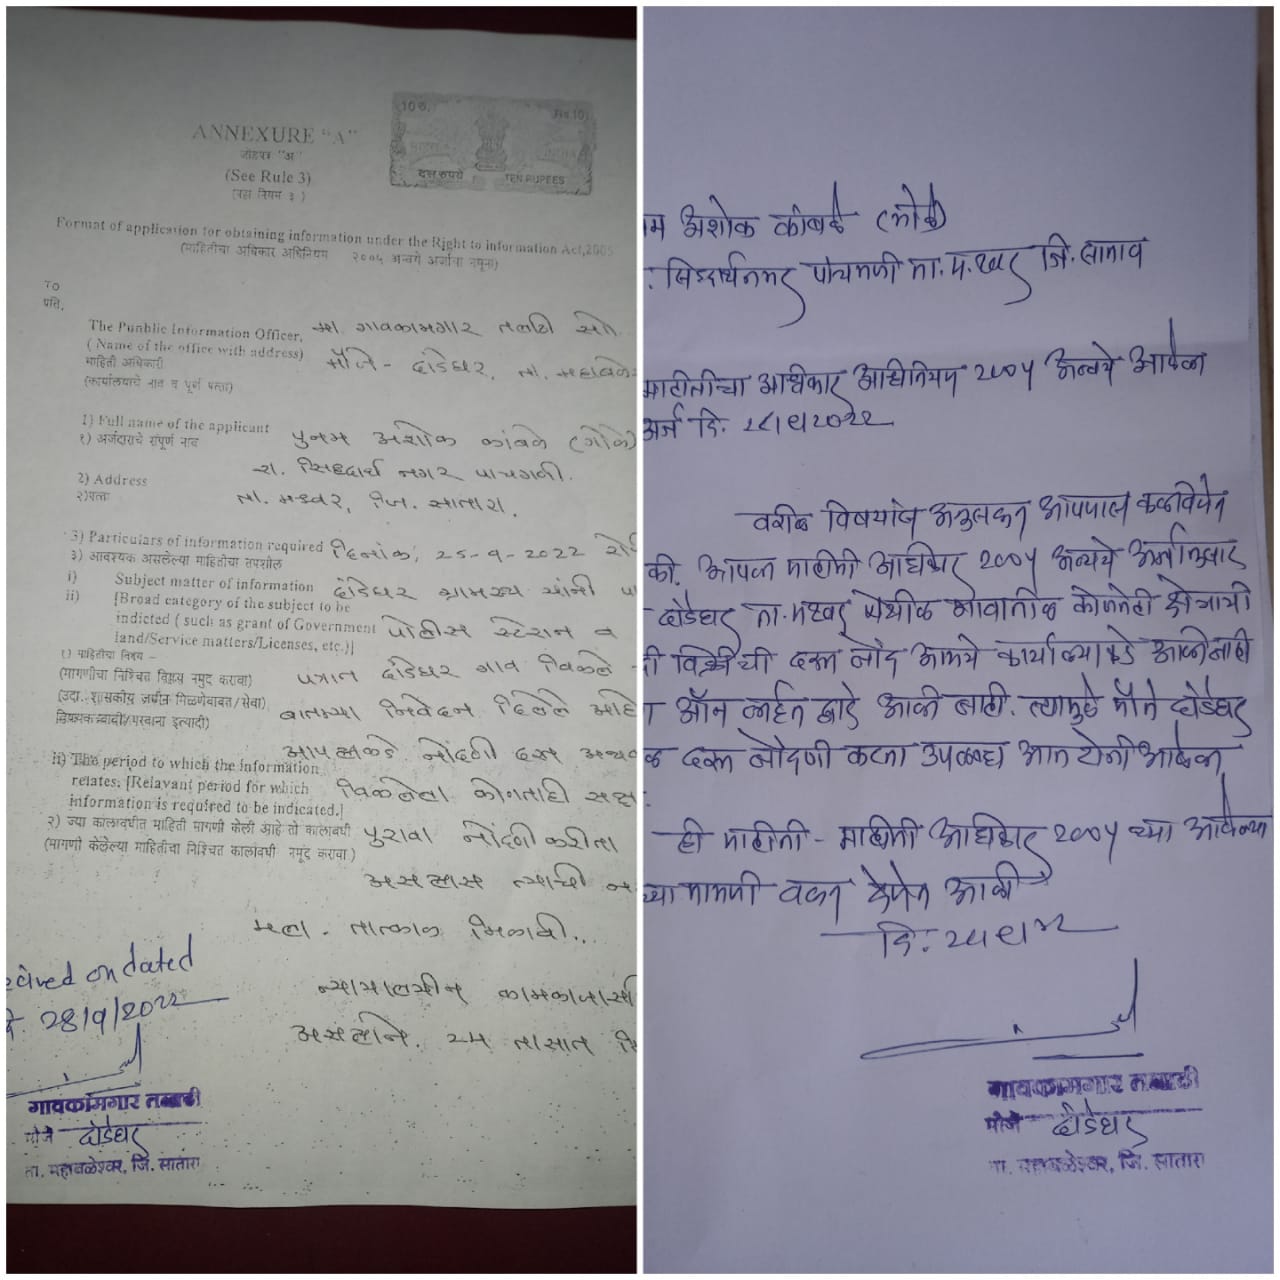 10 रु.
Rs.10
दस रुपये
TEN RUPEES
ANNEXURE "A"
जोडपत्र "अ"
(See Rule 3)
(पहा नियम ३ )
Format of application for obtaining information under the Right to information Act,2005
(माहितीचा अधिकार अधिनियम २००५ अन्वये अर्जाचा नमूना)
TO
प्रति,
The Punhlic Information Officer, मा. गावकामगार तलाठी सो
( Name of the office with address) मौजे - दांडेघर, ता. महाबळे
माहिती अधिकारी
(कार्यालयाचे नाव व पूर्ण पत्ता)
1) Full name of the applicant
१) अर्जदाराचे संपूर्ण नाव पुनम अशोक कांबळे (गोळे)
रा. सिद्धार्थ नगर पाचगणी.
2) Address
२)पत्ता ता. मश्वर, जि. सातारा.
3) Particulars of information required दिनांक, 25-9-2022 रो
३) आवश्यक असलेल्या माहितीचा तपशील
i) Subject matter of information दांडेघर ग्रामस्थ यांनी पा
ii) [Broad category of the subject to be
indicted ( such as grant of Government पोलीस स्टेशन व
land/Service matters/Licenses, etc.)]
१) माहितीचा विषय – पत्रात दांडेघर गाव विकले
(मागणीचा निश्चित विषय नमुद करावा)
(उदा. शासकीय जमीन मिळणेबाबत /सेवा)
विषयकबाबी/परवाना इत्यादी) बातम्या निवेदन दिलेले आहे
आपल्याकडे नोंदणी दस्त
ii) The period to which the information
relates. [Relavant period for which विकलेला कोणताही सक्ष
information is required to be indicated.]
२) ज्या कालावधीत माहिती मागणी केली आहे तो कालावधी पुरावा नोंदणीकरीता
(मागणी केलेल्या माहितीचा निश्चित कालावधी नमूद करावा )
असल्यास त्याची न
मला. तात्काळ मिळावी..
न्यायालयीन कामकाजासा
असल्याने. 24 तासात
ceived on dated
28/9/2022
गावकामगार तलाठी
मौजे दांडेघर
ता. महाबळेश्वर, जि. सातारा
नम अशोक कांबळे (गोळे)
. सिद्धार्थनगर पाचगणी ता. म.श्वर जि. सातारा
माहितीचा अधिकार अधिनियम 2005 अन्वये आपला
अर्ज दि. 28/9/2022
वरील विषयांस अनुसरून आपणास कळविणेत
की. आपला माहिती अधिकार 2005 अन्वये अर्जानुसार
दांडेघर ता. मश्वर येथील गावातील कोणतेही क्षेत्राची
दी विक्रीची दस्त नोंद आमचे कार्यालयाकडे आली नाही
ऑनलाईन द्वारे आली नाही. त्यामुळे मौजे दांडेघर
दस्त नोंदणी करता उपलब्ध
ही माहिती - माहिती अधिकार 2005 च्या आपल्या
च्या मागणी वरून देणेत आली
दि. 28/9/22
गावकामगार तलाठी
मौजे दांडेघर
ता. महाबळेश्वर, जि. सातारा